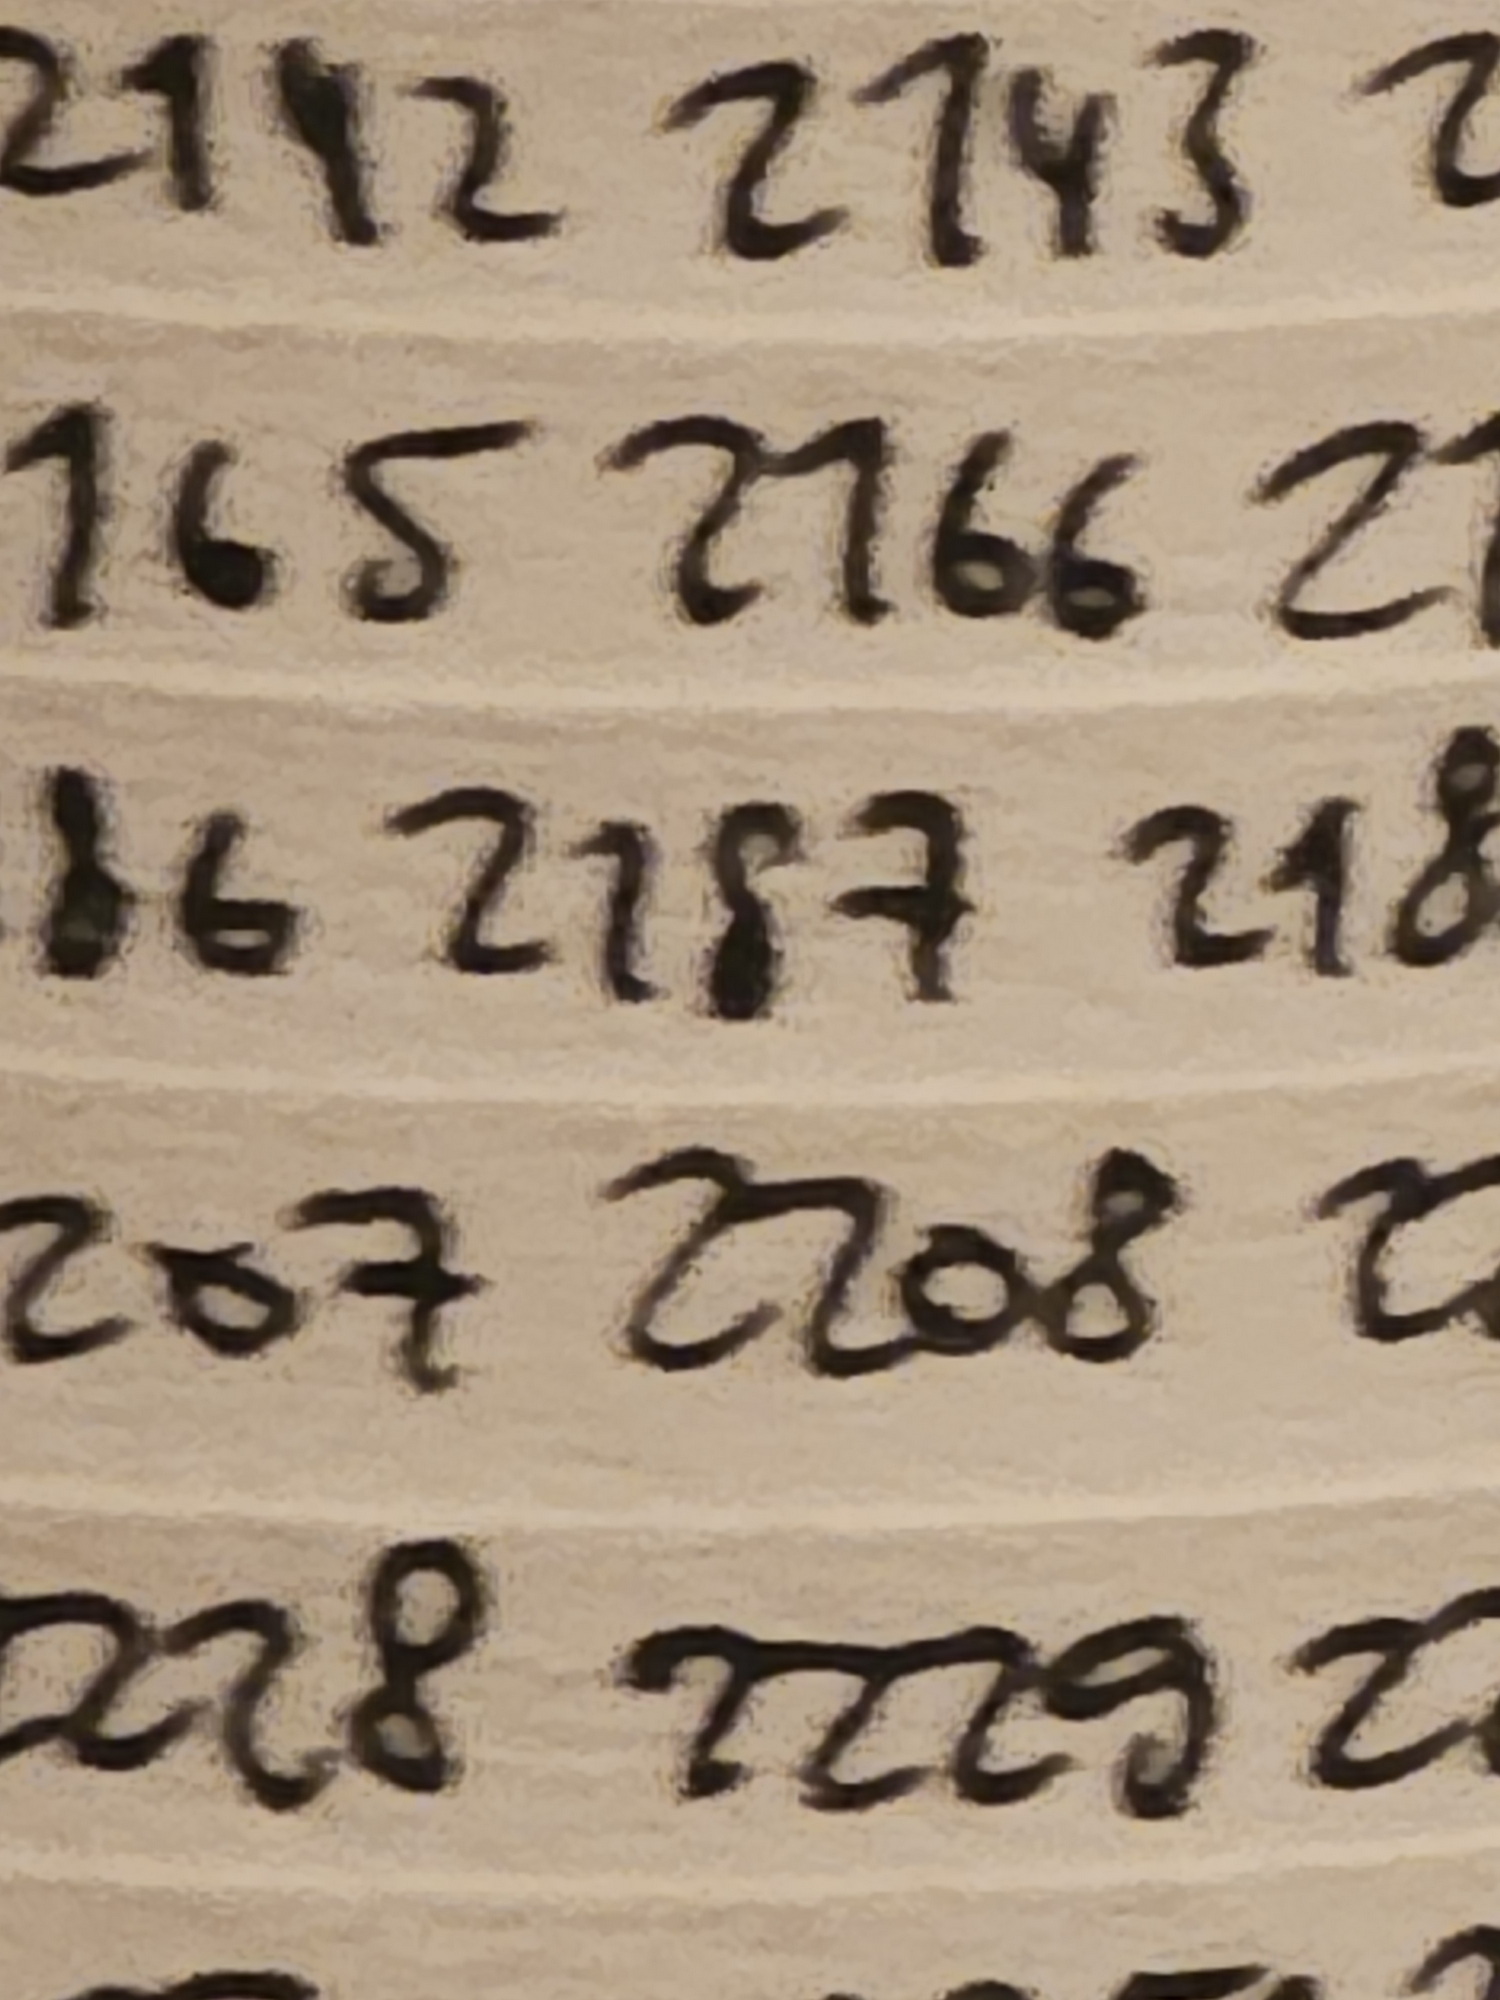 2142 2143 2
165 2166 21
86 2187 218
207 2208 22
2228 2229 22